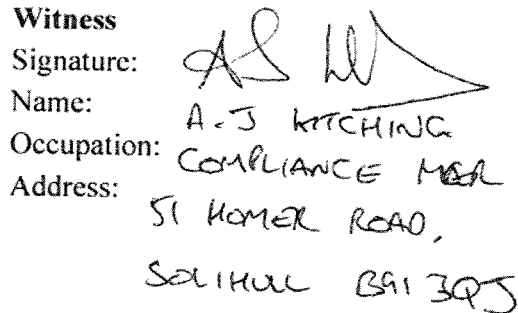 Witness
Signature:
Name: A.J KITCHING
Occupation: COMPLIANCE MGR
Address: 51 HOMER ROAD,
SOLIHULL B91 3QJ